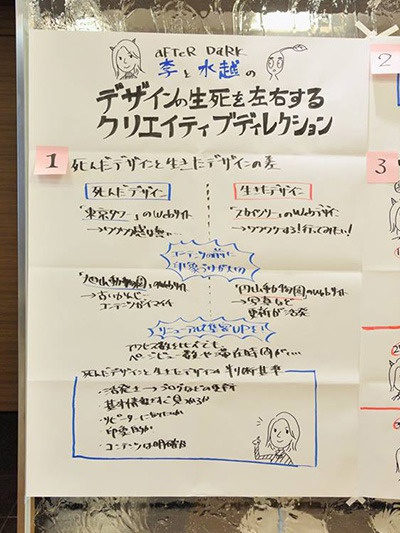 AFTER DARK
李と水越の
デザインの生死を左右する
クリエイティブディレクション
1 死んだデザインと生きたデザインの差
死んだデザイン
生きたデザイン
「東京タワー」のWebサイト
→ワクワク感は無い…
「スカイツリー」のWebデザイン
→ワクワクする!行ってみたい!
コンテンツの前に
印象づけが大切
動物園」のWebサイト
→古いかんじ
コンテンツがイマイチ
動物園」のWebサイト
→写真など
更新が活発
リニューアルで集客UPを!
アクセス数を比べても
ページビュー数や滞在時間が…
死んだデザインと生きたデザインの判断基準
・活発さ→ブログなどの更新
・基本情報がすぐ見れるか
・リピーターに
・印象
・コンテンツは明確か
2
3